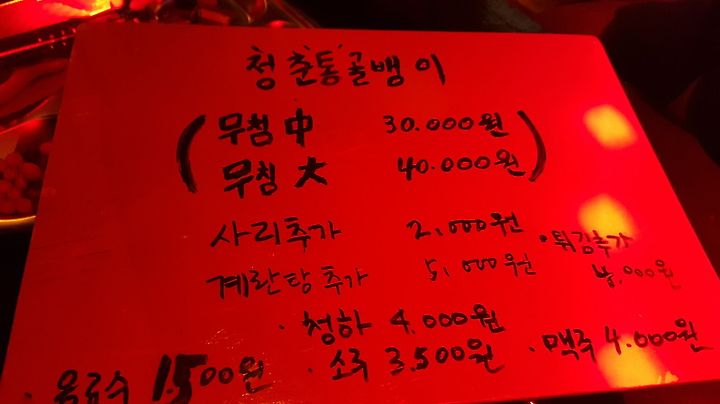 청춘통골뱅이
(무침 中 30.000원
무침 大 40.000원)
사리추가 2,000원
·튀김추가
계란탕추가 5,000원 4,000원
·청하 4.000원
·음료수 1.500원 ·소주 3.500원 ·맥주 4.000원